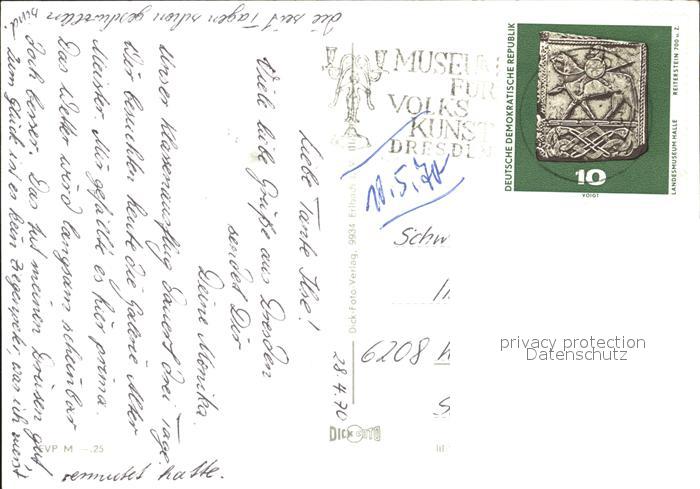 Liebe Tante Ilse!
Viele liebe Grüße aus Dresden
sendet Dir
Deine Monika.
Unser Klassenausflug dauert drei Tage.
Wir besuchten heute die Galerie Alter
Meister. Mir gefällt es hier prima.
Das Wetter wird langsam scheinbar
doch besser. Das tut meinen Drüsen gut,
die seit Tagen schon geschwollen
sind. Zum Glück ist es kein Ziegenpeter, was ich zuerst
vermutet hatte.
28.4.70
EVP M -.25
Dick-Foto-Verlag, 9934 Erlbach
DICK FOTO
MUSEUM
FÜR
VOLKS
KUNST
DRESDEN
11.5.70
Schw
6208
DEUTSCHE DEMOKRATISCHE REPUBLIK
10
VOIGT
LANDESMUSEUM HALLE
REITERSTEIN 700 u. Z.
privacy protection
Datenschutz